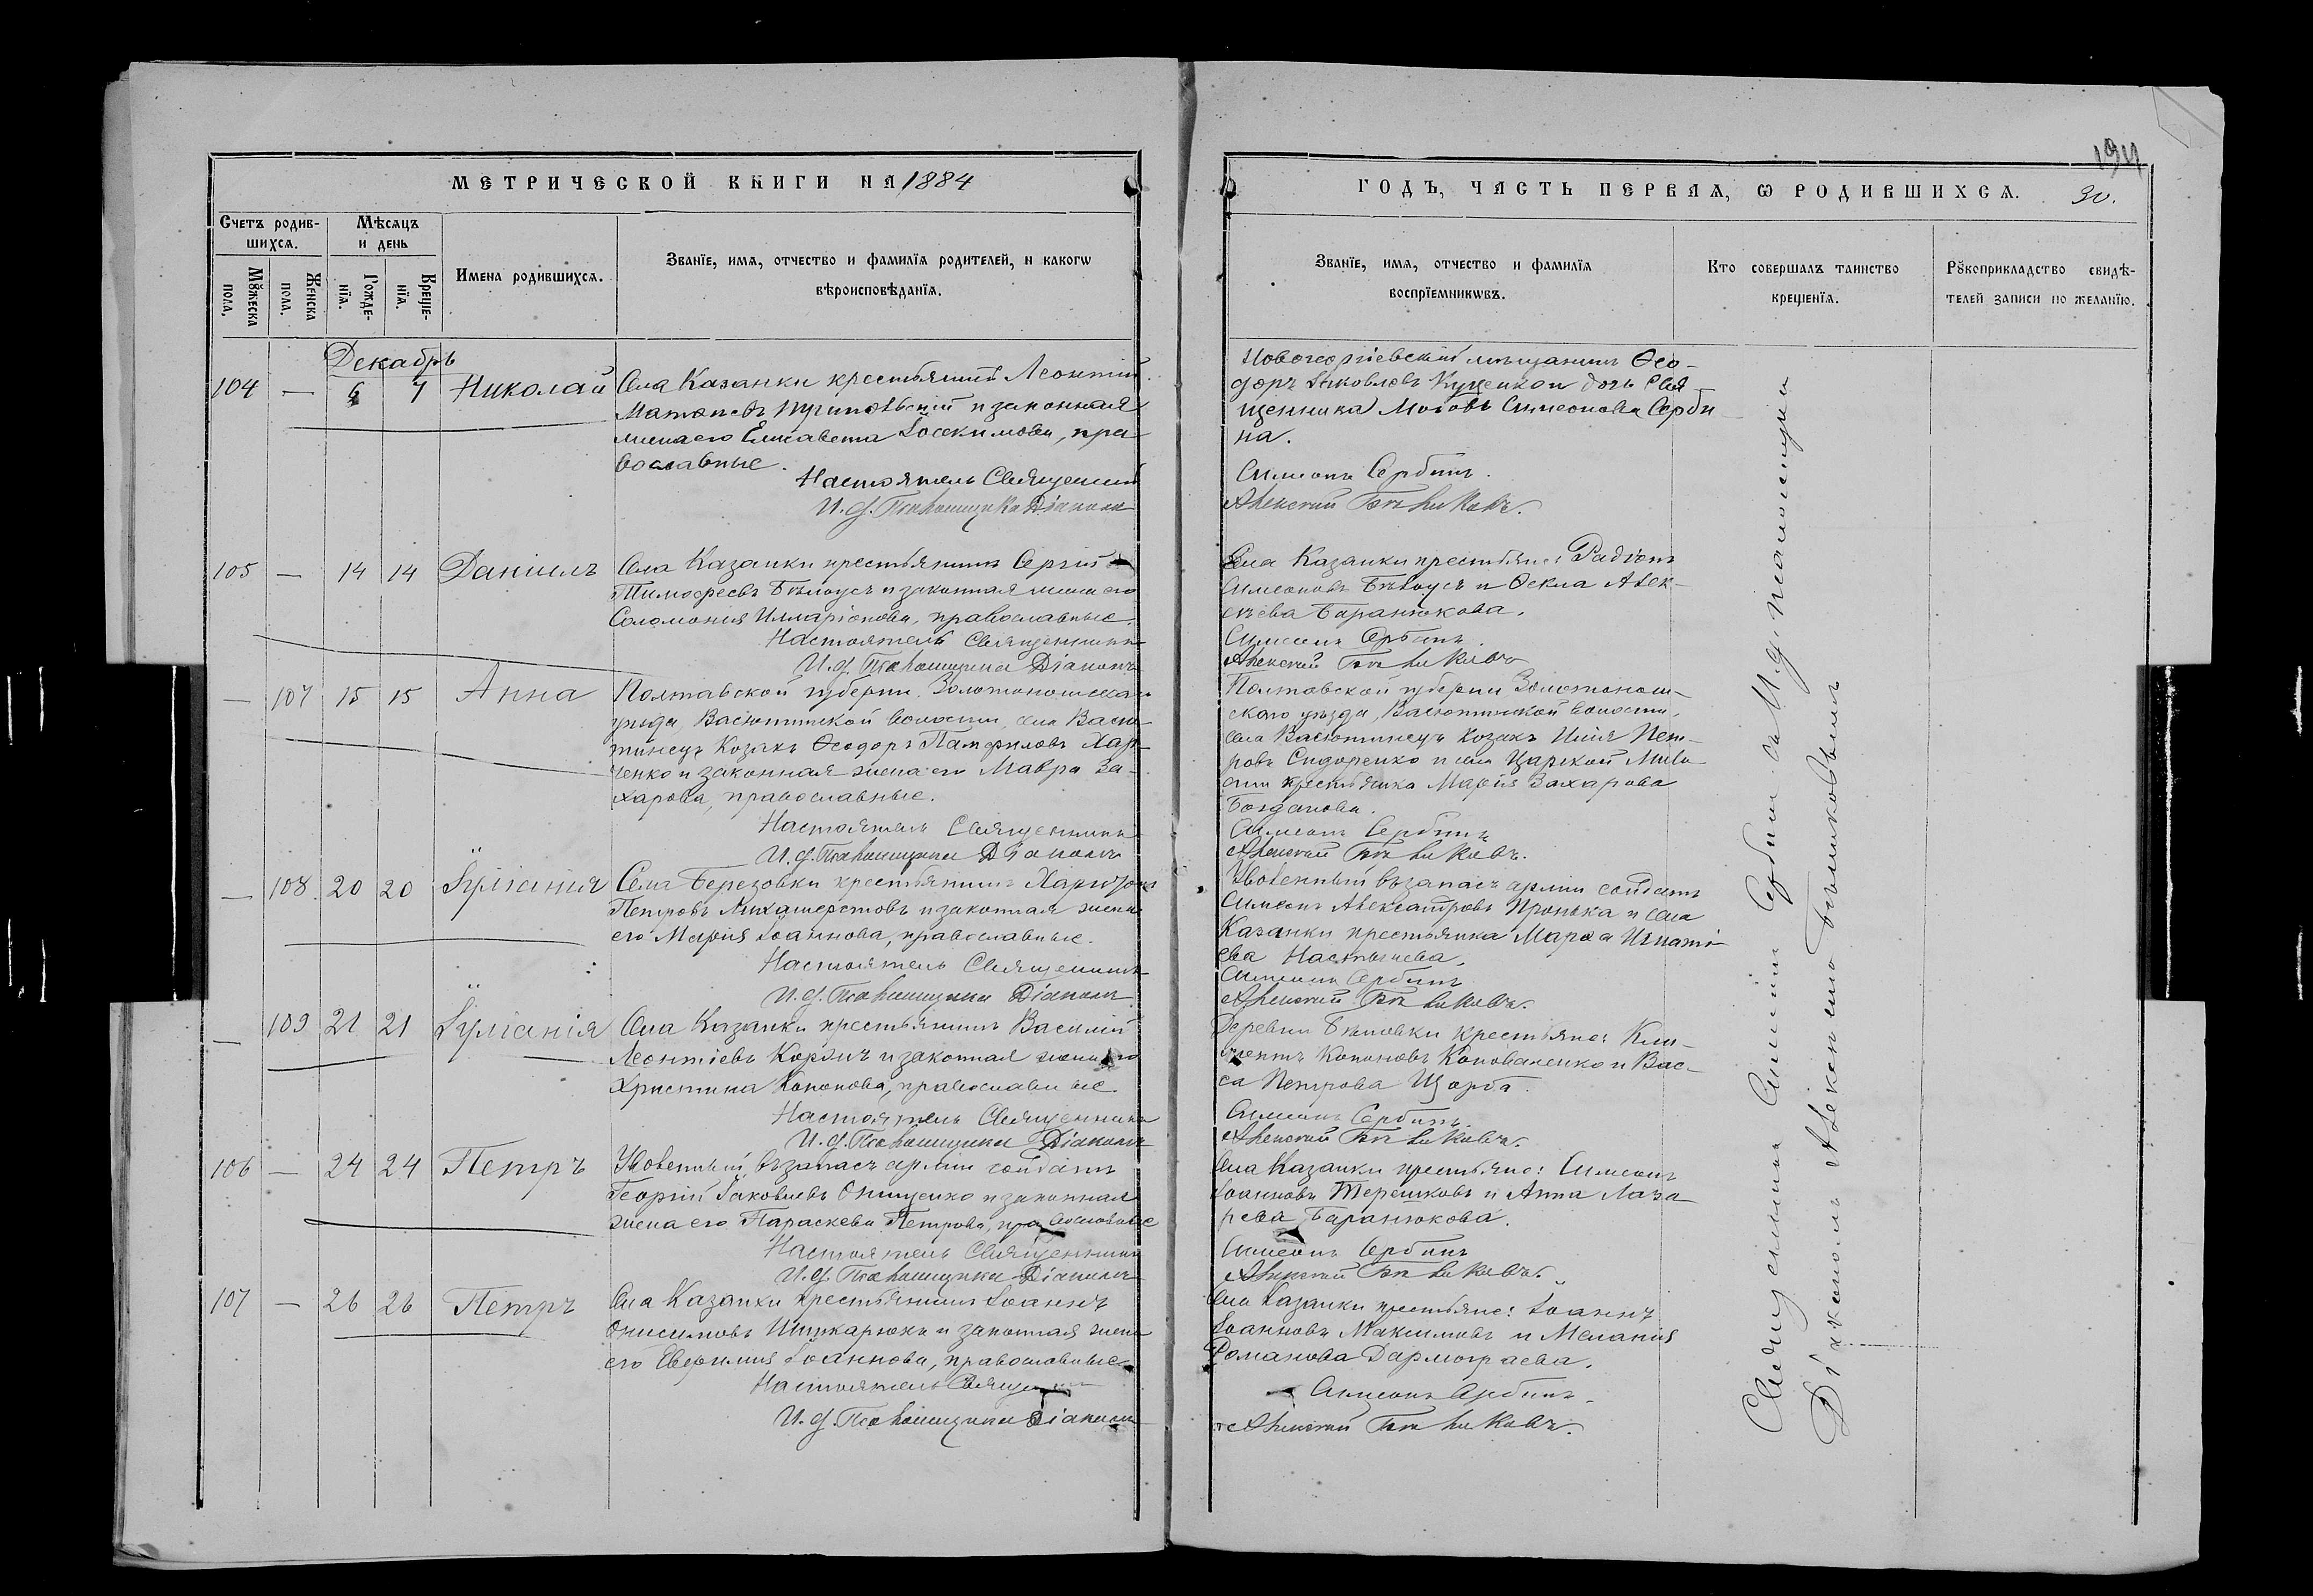 194
МЕТРИЧЕСКОЙ КНИГИ НА 1884
ГОДЪ, ЧАСТЬ ПЕРВАЯ, Ѡ РОДИВШИХСѦ. 30.
Счетъ родив-
шихсѧ.
Мѣсѧцъ
и день
Мꙋжеска
пола.
Женска
пола.
Рожде-
нїѧ.
Креще-
нїѧ.
Имена родившихсѧ.
Званїе, имѧ, отчество и фамилїѧ родителей, и какогѡ
вѣроисповѣданїѧ.
Званїе, имѧ, отчество и фамилїѧ
воспрїемникѡвъ.
Кто совершалъ таинство
крещенїѧ.
Рꙋкоприкладство свидѣ-
телей записи по желанїю.
Декабрь
104 — 6 7 Николай
Села Казанки крестьянинъ Леонтій
и законная
жена его Елисавета Іоакимова, пра-
вославные.
Настоятель Священникъ
И. д. Псаломщика Діаконъ
Новогеоргіевскій мѣщанинъ Ѳео-
доръ Яковлевъ Куценко и дочь Свя-
щенника Симеонова Серби-
на.
Симеонъ Сербинъ.
Алексій
105 — 14 14 Даніилъ
Села Казанки крестьянинъ Сергій
Тимофеевъ Бѣлоусъ и законная жена его
Соломонія Илларіонова, православные.
Настоятель Священникъ
И. д. Псаломщика Діаконъ
Села Казанки крестьяне: Радіонъ
Симеоновъ Бѣлоусъ и Ѳекла Алек-
сѣева Баранюкова.
Симеонъ Сербинъ.
Алексій
— 107 15 15 Анна
Полтавской губерніи Золотоношскаго
уѣзда, Васютинской волости, села Васю-
тинецъ Козакъ Ѳеодоръ Памфиловъ Хар-
ченко и законная жена его Мавра За-
харова, православные.
Настоятель Священникъ
И. д. Псаломщика Діаконъ
Полтавской губерніи Золотонош-
скаго уѣзда, Васютинской волости,
села Васютинецъ козакъ Илія Пет-
ровъ Сидоренко и села Царской Мило-
сти крестьянка Марія Захарова
Богданова.
Симеонъ Сербинъ
Алексій
— 108 20 20 Іуліанія
Села Березовки крестьянинъ Харитонъ
Петровъ и законная жена
его Марія Іоаннова, православные.
Настоятель Священникъ
И. д. Псаломщика Діаконъ
Уволенный въ запасъ арміи солдатъ
Симеонъ Александровъ Пронька и села
Казанки крестьянка Марѳа Игнаті-
ева
Симеонъ Сербинъ
Алексій
— 109 21 21 Іуліанія
Села Казанки крестьянинъ Василій
Леонтіевъ Коржъ и законная жена его
Христина Кононова, православные.
Настоятель Священникъ
И. д. Псаломщика Діаконъ
Деревни Бѣловки крестьяне: Кли-
ментъ Кононовъ Коноваленко и Вас-
са Петрова Щорба.
Симеонъ Сербинъ.
Алексій
106 — 24 24 Петръ
Уволенный въ запасъ арміи солдатъ
Георгій Іаковлевъ Онищенко и законная
жена его Параскева Петрова, православные
Настоятель Священникъ
И. д. Псаломщика Діаконъ
Села Казанки крестьяне: Симеонъ
Іоанновъ Терешковъ и Анна Лаза-
рева Баранюкова.
Симеонъ Сербинъ
Алексій
107 — 26 26 Петръ
Села Казанки крестьянинъ Іоаннъ
Онисимовъ Шинкарюкъ и законная жена
его Евфимія Іоаннова, православные.
Настоятель Священникъ
И. д. Псаломщика Діаконъ
Села Казанки крестьяне: Іоаннъ
Іоанновъ Максимовъ и Меланія
Романова Дармограева.
Симеонъ Сербинъ.
Алексій
Священникъ Симеонъ Сербинъ съ И. д. псаломщика
Діакономъ Алексіемъ